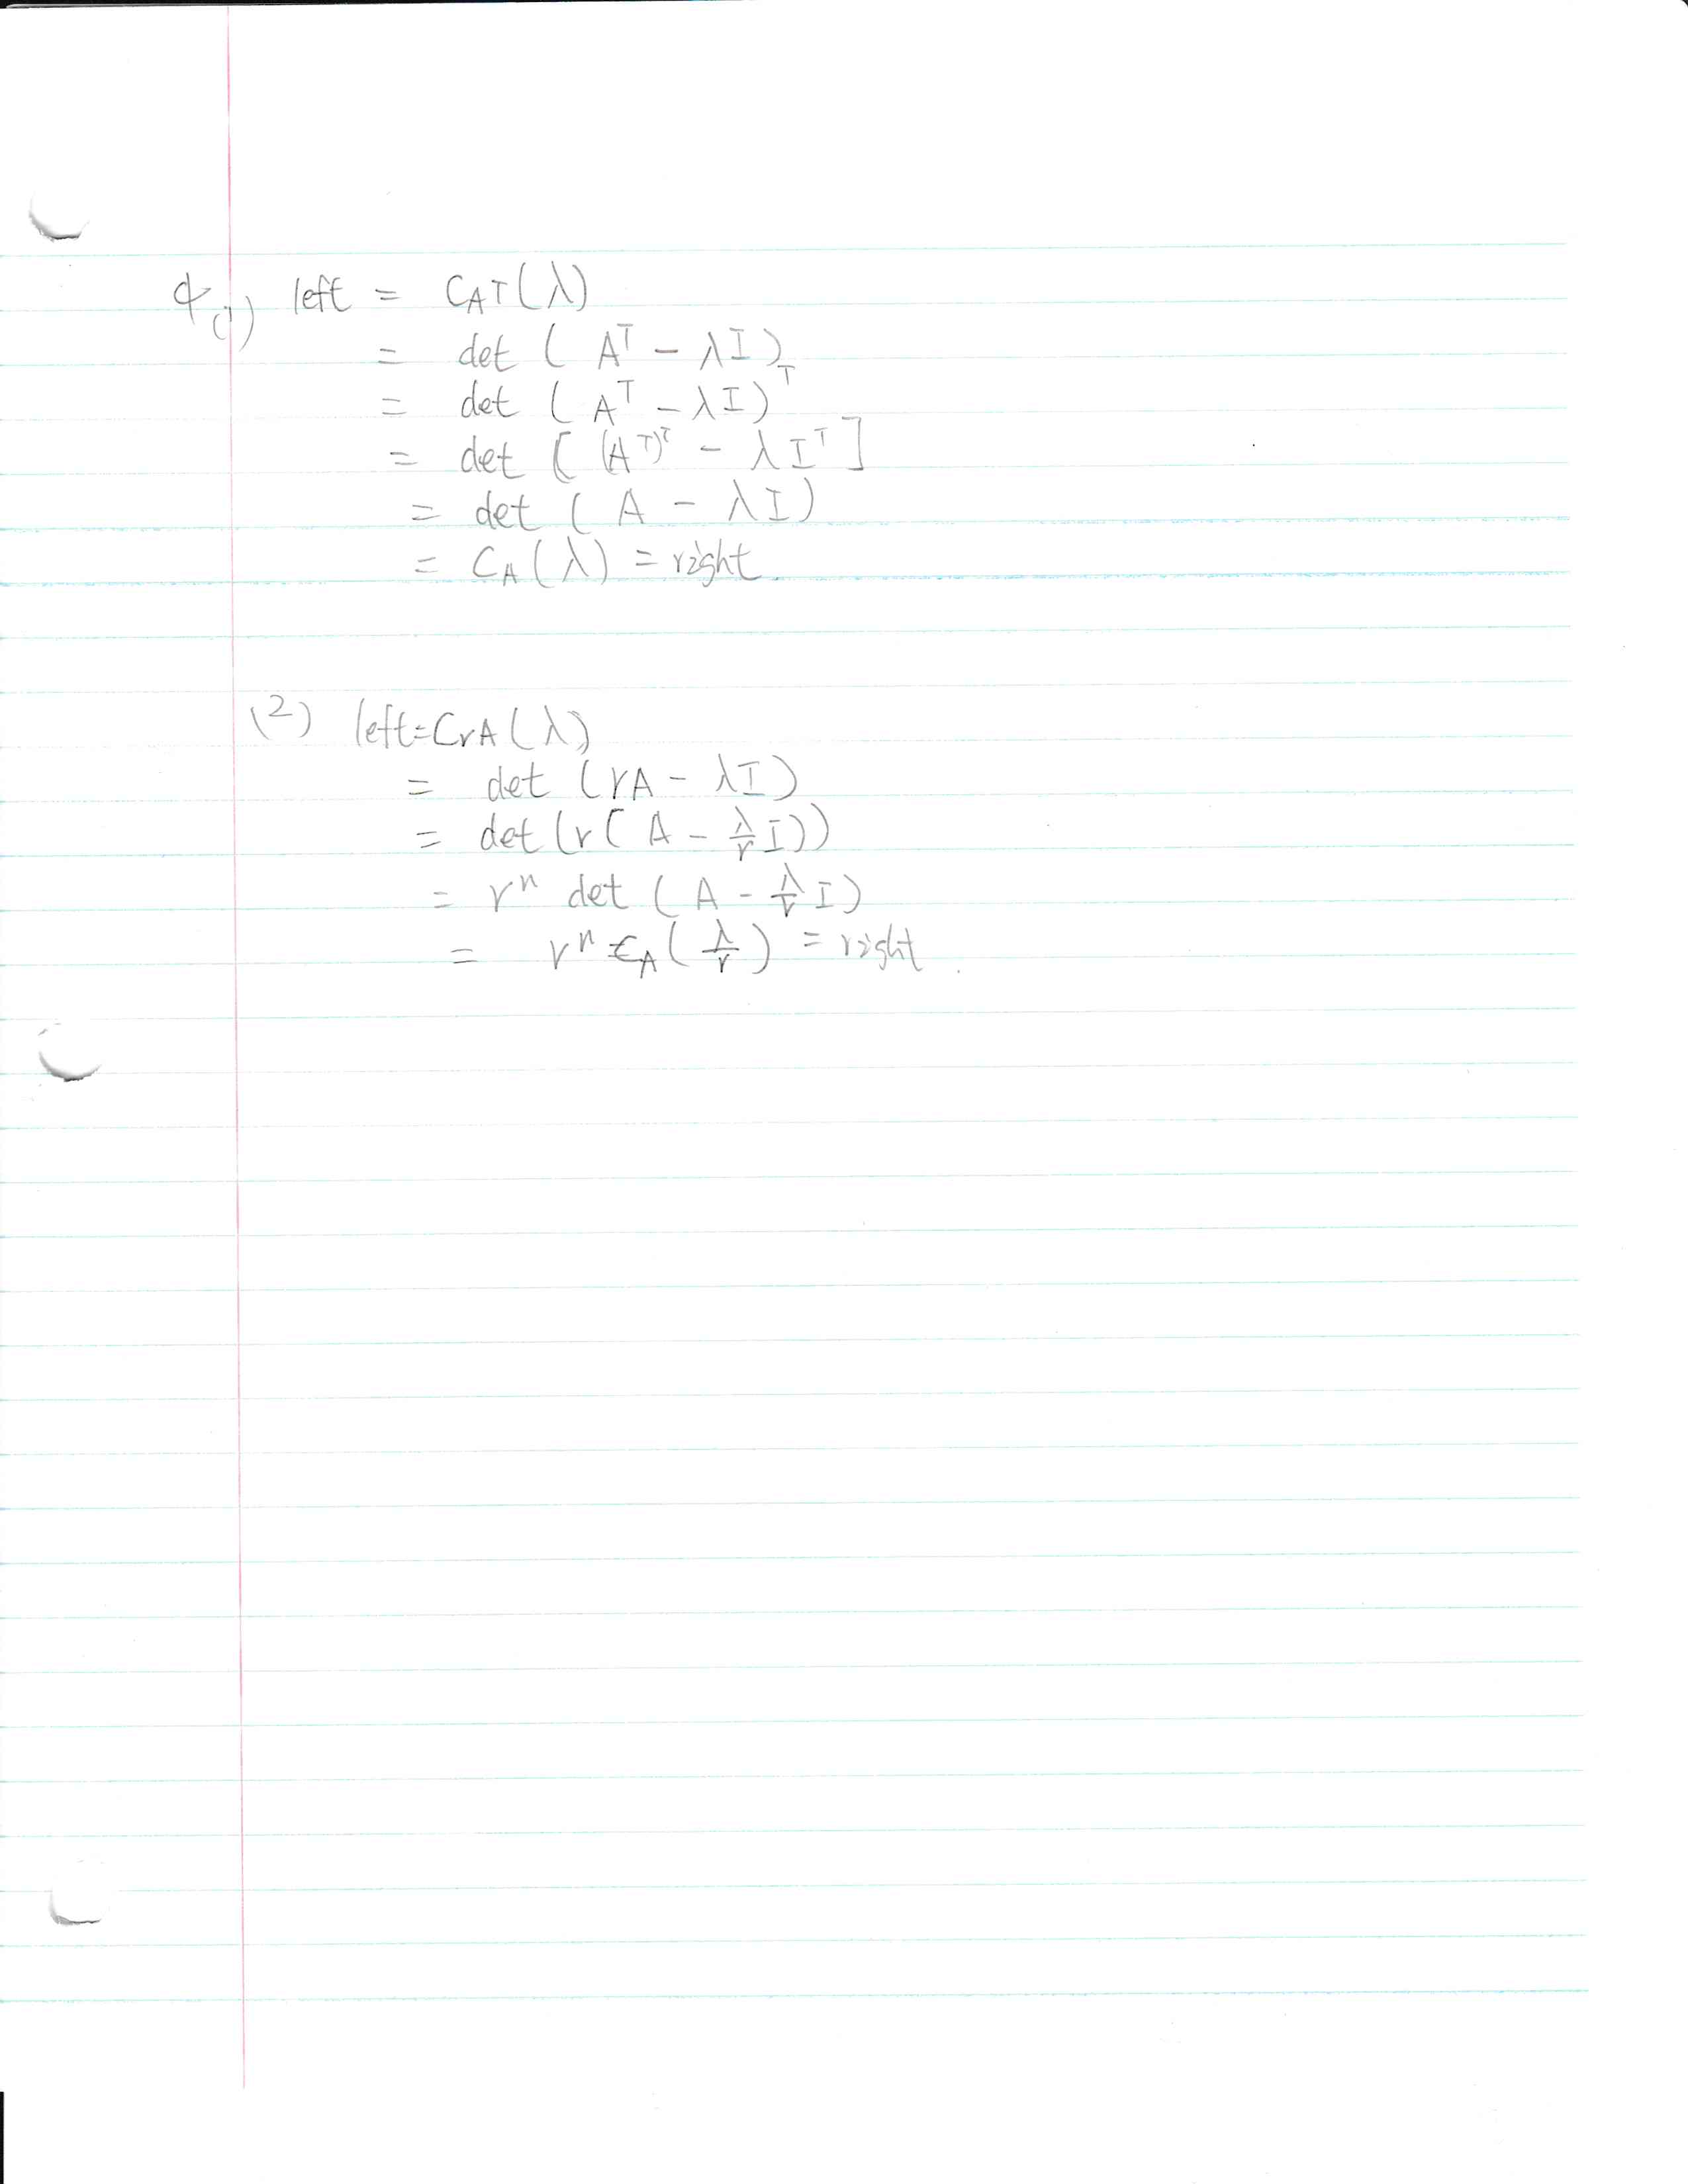 4(1) left = C_{A^T}(λ)
= det (A^T - λI)
= det (A^T - λI)^T
= det [(A^T)^T - λI^T]
= det (A - λI)
= C_A(λ) = right.
(2) left = C_{rA}(λ)
= det (rA - λI)
= det (r(A - \frac{λ}{r}I))
= r^n det (A - \frac{λ}{r}I)
= r^n C_A(\frac{λ}{r}) = right.